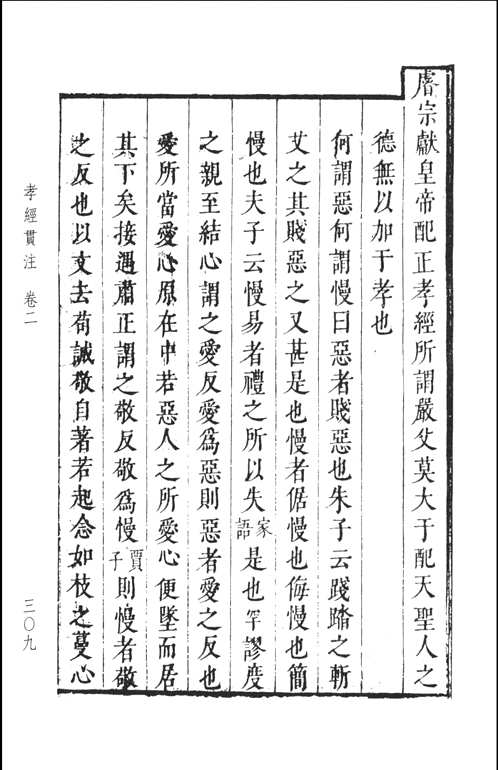 睿宗獻皇帝配正孝經所謂嚴父莫大于配天聖人之
德無以加于孝也
何謂惡何謂慢曰惡者賤惡也朱子云踐踏之斬
艾之其賤惡之又甚是也慢者倨慢也侮慢也簡
慢也夫子云慢易者禮之所以失家語是也罕謬度
之親至結心謂之愛反愛爲惡則惡者愛之反也
愛所當愛心原在中若惡人之所愛心便墜而居
其下矣接遇肅正謂之敬反敬爲慢賈子則慢者敬
之反也以文去苟誠敬自著若起念如枝之蔓心
孝經貫注 卷二
三〇九